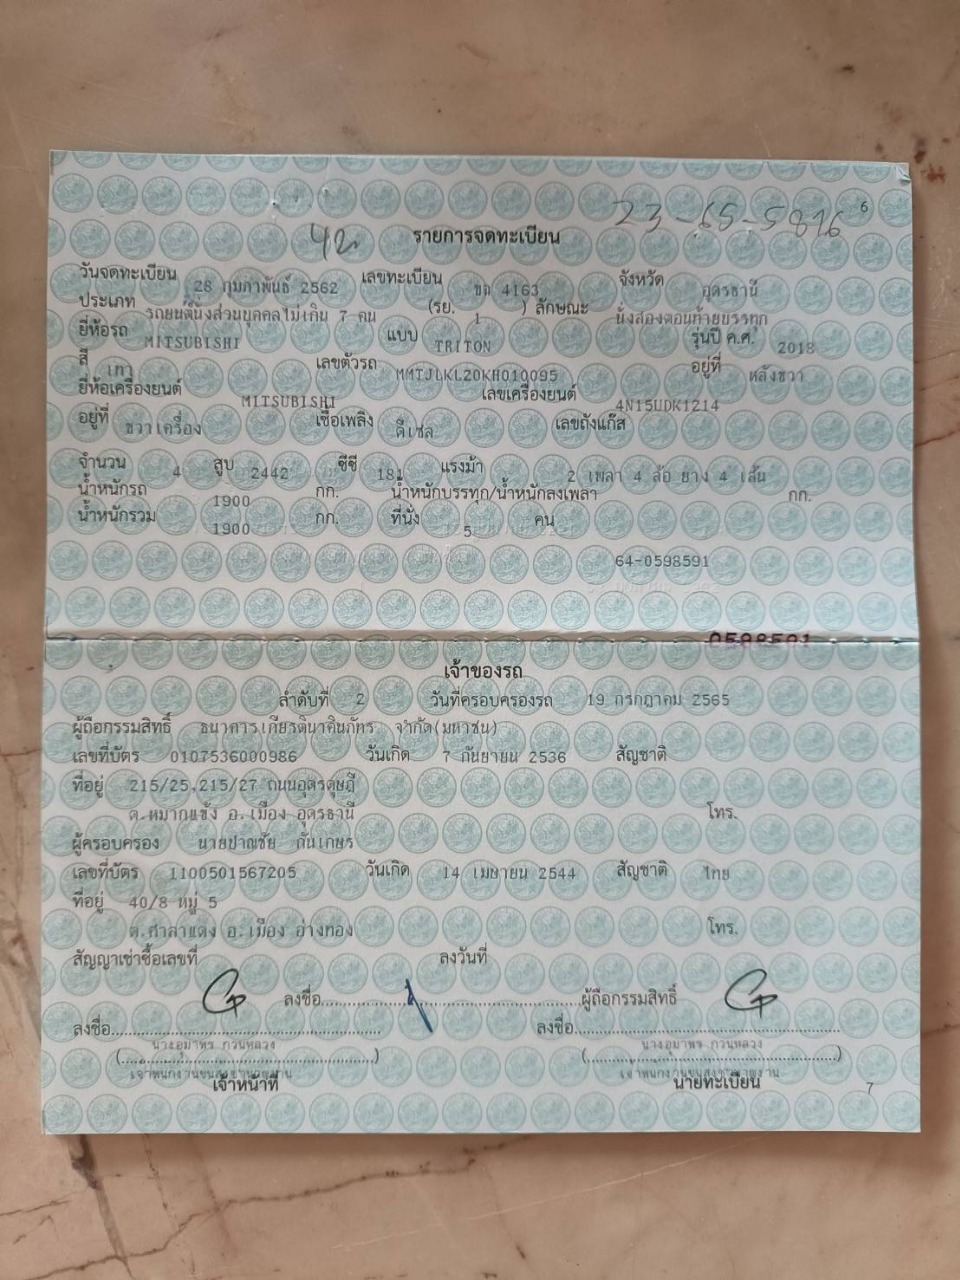 23-65-5816 6
รายการจดทะเบียน
วันจดทะเบียน 28 กุมภาพันธ์ 2562 เลขทะเบียน ขถ 4163 จังหวัด อุดรธานี
ประเภท รถยนต์นั่งส่วนบุคคลไม่เกิน 7 คน (รย. 1 ) ลักษณะ นั่งสองตอนท้ายบรรทุก
ยี่ห้อรถ MITSUBISHI แบบ TRITON รุ่นปี ค.ศ. 2018
สี เทา เลขตัวรถ MMTJLKL20KH010095 อยู่ที่ หลังขวา
ยี่ห้อเครื่องยนต์ MITSUBISHI เลขเครื่องยนต์ 4N15UDK1214
อยู่ที่ ขวาเครื่อง เชื้อเพลิง ดีเซล เลขถังแก๊ส
จำนวน 4 สูบ 2442 ซีซี 181 แรงม้า 2 เพลา 4 ล้อ ยาง 4 เส้น
น้ำหนักรถ 1900 กก. น้ำหนักบรรทุก/น้ำหนักลงเพลา กก.
น้ำหนักรวม 1900 กก. ที่นั่ง 5 คน
64-0598591
0598591
เจ้าของรถ
ลำดับที่ 2 วันที่ครอบครองรถ 19 กรกฎาคม 2565
ผู้ถือกรรมสิทธิ์ ธนาคารเกียรตินาคินภัทร จำกัด(มหาชน)
เลขที่บัตร 0107536000986 วันเกิด 7 กันยายน 2536 สัญชาติ
ที่อยู่ 215/25,215/27 ถนนอุดรดุษฎี
ต.หมากแข้ง อ.เมือง อุดรธานี โทร.
ผู้ครอบครอง นายปาณชัย กันเกษร
เลขที่บัตร 1100501567205 วันเกิด 14 เมษายน 2544 สัญชาติ ไทย
ที่อยู่ 40/8 หมู่ 5
ต.ศาลาแดง อ.เมือง อ่างทอง โทร.
สัญญาเช่าซื้อเลขที่ ลงวันที่
ลงชื่อ ผู้ถือกรรมสิทธิ์
ลงชื่อ ลงชื่อ
นางอุมาพร กวนหลวง นางอุมาพร กวนหลวง
เจ้าหน้าที่ นายทะเบียน
7